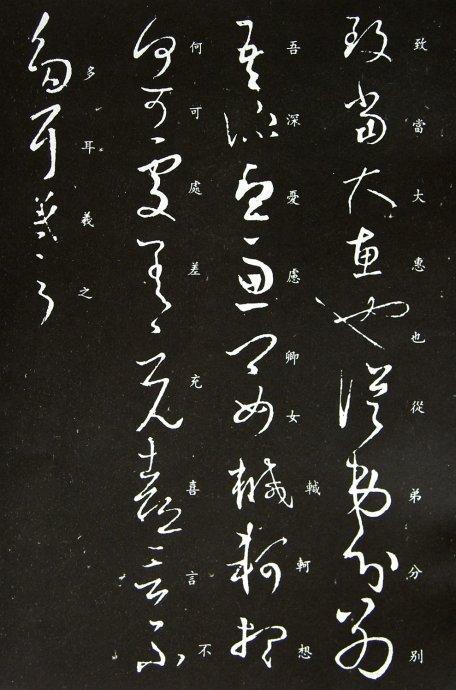 致當大惠也從弟分別
吾深憂慮卿女輱軻想
何可處差充喜言不
多耳羲之